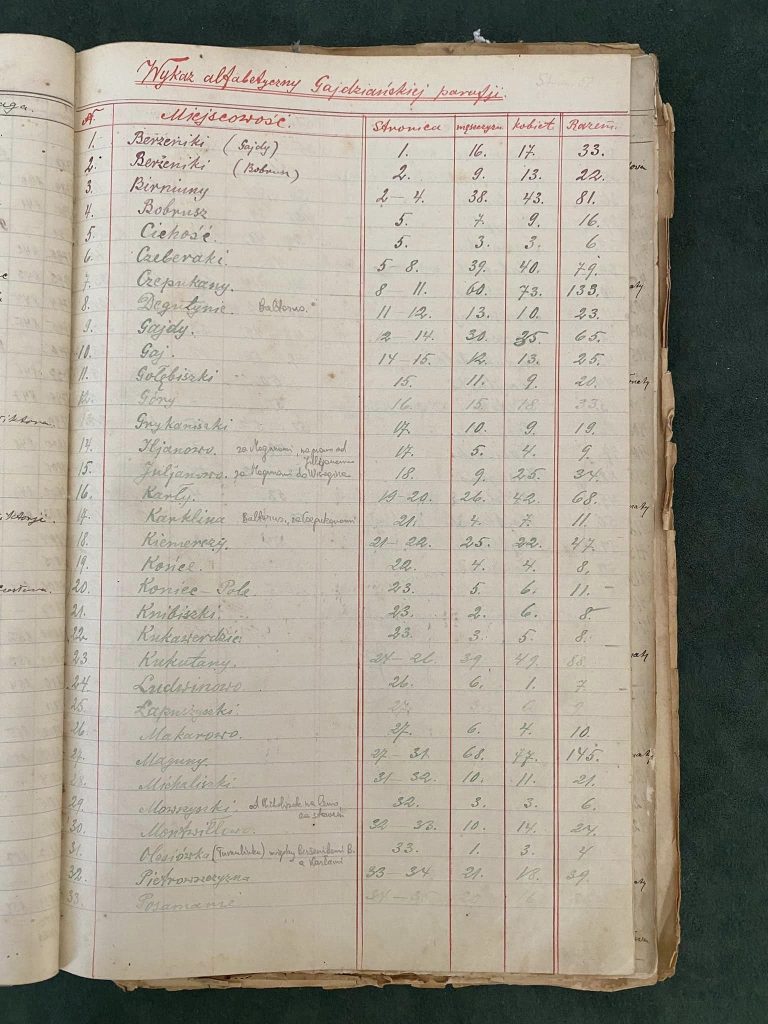 Wykaz alfabetyczny Gajdziańskiej parafji.
№ Miejscowość. Stronica mężczyzn kobiet Razem.
1. Berżeniki (Gajdy) 1. 16. 17. 33.
2. Berżeniki (Bobrusz) 2. 9. 13. 22.
3. Birniuny 2-4. 38. 43. 81.
4. Bobrusz 5. 7. 9. 16.
5. Cichość. 5. 3. 3. 6
6. Czeberaki. 5-8. 39. 40. 79.
7. Czepukany. 8-11. 60. 73. 133.
8. Degutynie. 11-12. 13. 10. 23.
9. Gajdy. 12-14. 30. 35. 65.
10. Gaj. 14-15. 12. 13. 25.
11. Gołębiszki 15. 11. 9. 20.
12. Góry 16. 15. 18. 33.
Grykaniszki 17. 10. 9. 19.
14. Iljanowo. za Magunami, 17. 5. 4. 9.
15. Juljanowo. za Magunami 18. 9. 25. 34.
16. Karły. 19-20. 26. 42. 68.
17. Karklina 21. 4. 7. 11.
18. Kiemerczy. 21-22. 25. 22. 47.
19. Końce. 22. 4. 4. 8.
20. Koniec-Pole 23. 5. 6. 11.-
21. Knibiszki. 23. 2. 6. 8.
22. Kukawerdzie 23. 3. 5. 8.
23 Kukutany. 39. 49. 88.
24. Ludwinowo 26. 6. 1. 7.
25. Łapuszyszki 27.
26. Makarowo. 27. 6. 4. 10.
27. Maguny. 27-31. 68. 77. 145.
28. Michaliszki 31-32. 10. 11. 21.
29. Mowszyszki. 32. 3. 3. 6.
30. Montwiłłowo. 32-33. 10. 14. 24.
31. Olesiówka między Berżenikami B. a Karłami 33. 1. 3. 4
32. Pietrowszczyzna 33-34 21. 18. 39.
33. Posamanie 34-35